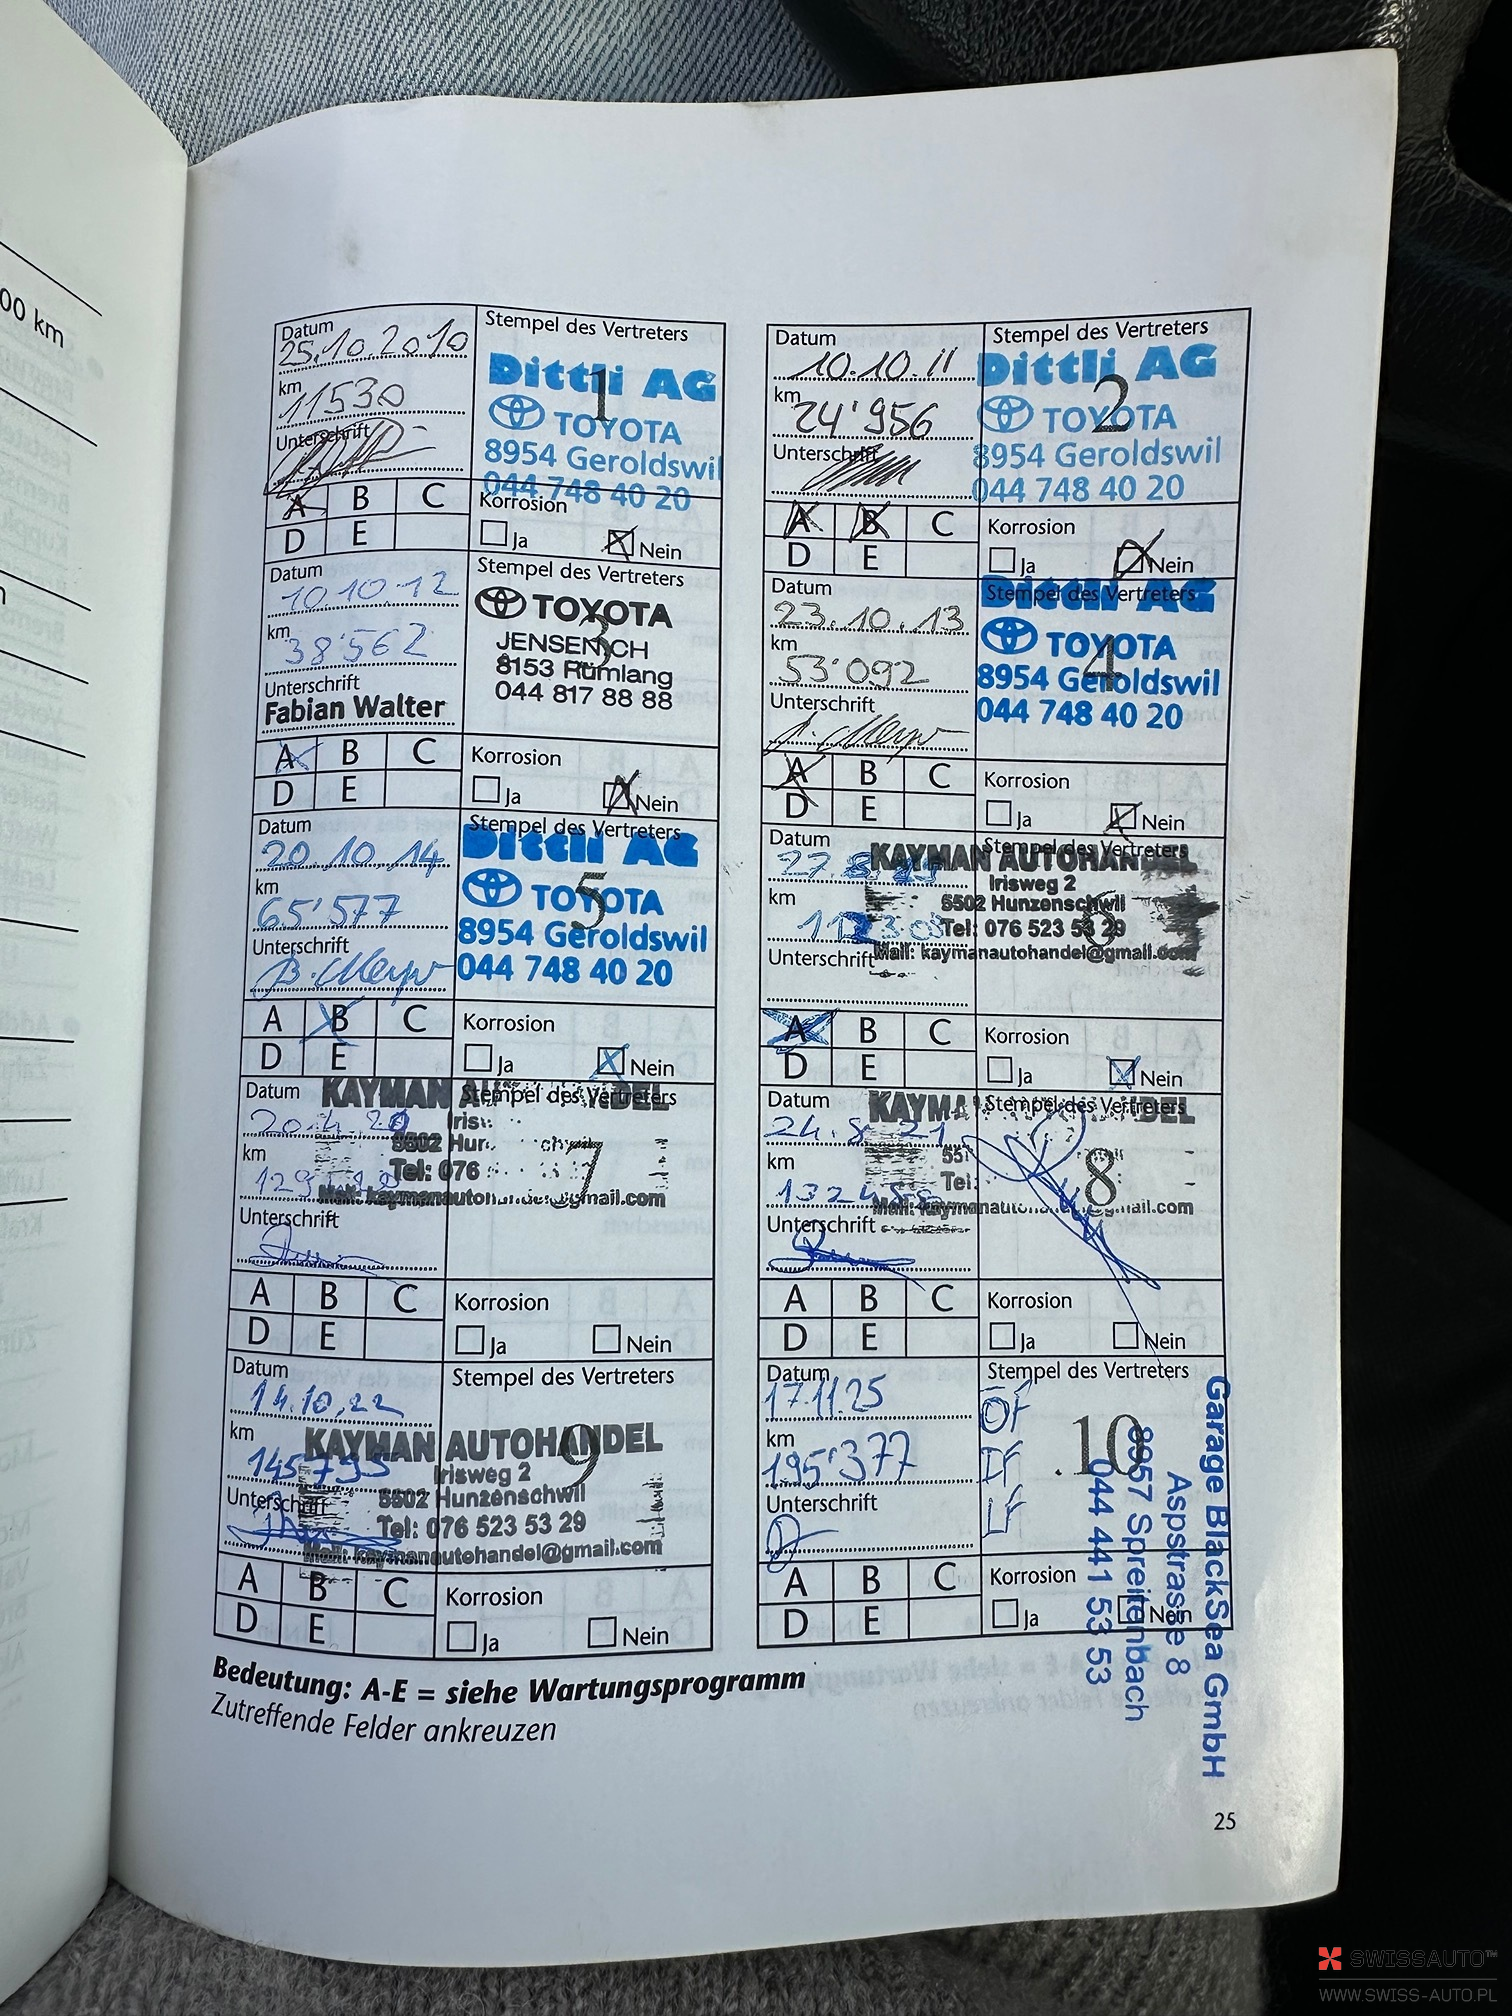 00 km
Datum
25.10.2010
km
11530
Unterschrift
Stempel des Vertreters
1
Dittli AG
TOYOTA
8954 Geroldswil
044 748 40 20
A B C
D E
Korrosion
Ja Nein
Datum
10.10.11
km
24'956
Unterschrift
Stempel des Vertreters
2
Dittli AG
TOYOTA
8954 Geroldswil
044 748 40 20
A B C
D E
Korrosion
Ja Nein
Datum
10.10.12
km
38'562
Unterschrift
Fabian Walter
Stempel des Vertreters
3
TOYOTA
JENSEN.CH
8153 Rümlang
044 817 88 88
A B C
D E
Korrosion
Ja Nein
Datum
23.10.13
km
53'092
Unterschrift
Stempel des Vertreters
4
Dittli AG
TOYOTA
8954 Geroldswil
044 748 40 20
A B C
D E
Korrosion
Ja Nein
Datum
20.10.14
km
65'577
Unterschrift
Stempel des Vertreters
5
Dittli AG
TOYOTA
8954 Geroldswil
044 748 40 20
A B C
D E
Korrosion
Ja Nein
Datum
km
Unterschrift
Stempel des Vertreters
6
KAYMAN AUTOHANDEL
Irisweg 2
5502 Hunzenschwil
Tel: 076 523 53 29
Mail: kaymanautohandel@gmail.com
A B C
D E
Korrosion
Ja Nein
Datum
20.4.20
km
Unterschrift
Stempel des Vertreters
7
KAYMAN
5502
Tel: 076
@gmail.com
A B C
D E
Korrosion
Ja Nein
Datum
24.8.21
km
Unterschrift
Stempel des Vertreters
8
Tel:
A B C
D E
Korrosion
Ja Nein
Datum
14.10.22
km
145795
Unterschrift
Stempel des Vertreters
9
KAYMAN AUTOHANDEL
Irisweg 2
5502 Hunzenschwil
Tel: 076 523 53 29
Mail: kaymanautohandel@gmail.com
A B C
D E
Korrosion
Ja Nein
Datum
17.11.25
km
195'377
Unterschrift
Stempel des Vertreters
10
ÖF
IF
LF
Garage BlackSea GmbH
Aspstrasse 8
8957 Spreitenbach
044 441 53 53
A B C
D E
Korrosion
Ja Nein
Bedeutung: A-E = siehe Wartungsprogramm
Zutreffende Felder ankreuzen
25
SWISSAUTO™
WWW.SWISS-AUTO.PL